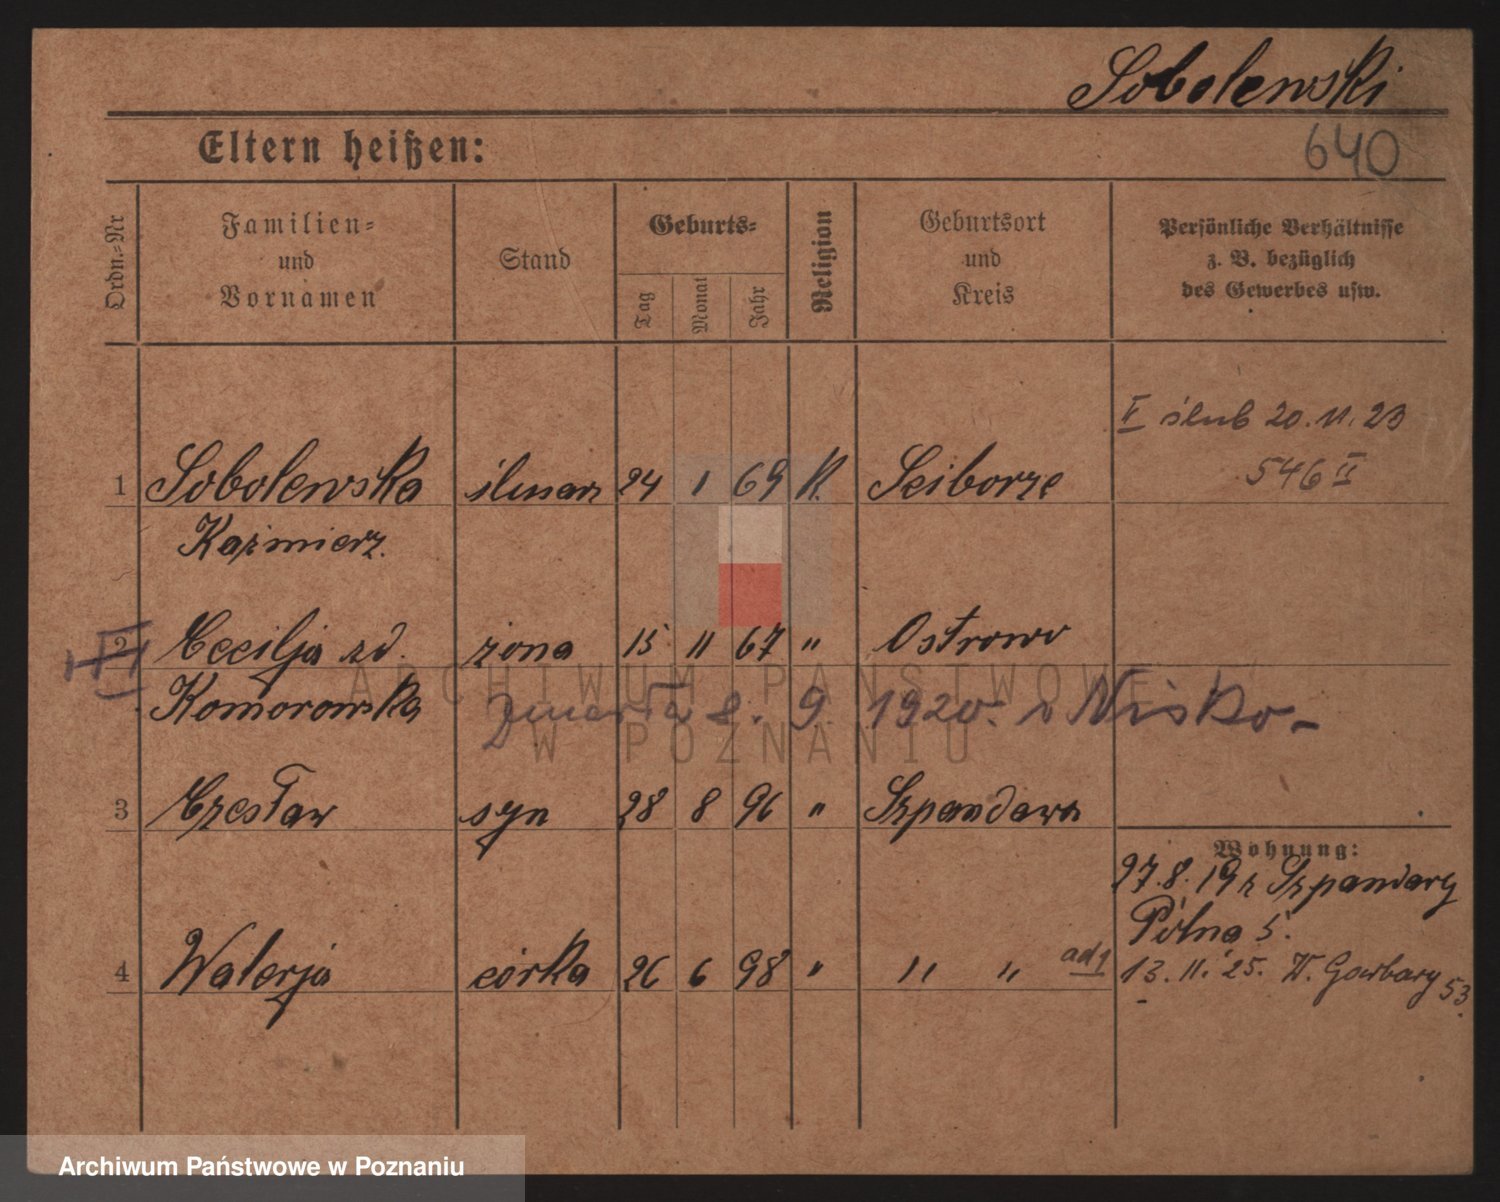 Sobolewski
640
Eltern heißen:
Ordn.-Nr
Familien- und Vornamen
Stand
Geburts-
Tag
Monat
Jahr
Religion
Geburtsort und Kreis
Persönliche Verhältnisse
z. B. bezüglich
des Gewerbes usw.
V ślub 20.11.23
546 II
1 Sobolewska ślusarz 24 1 69 K. Sciborze
Kazimierz.
2 Cecilja zd. żona 15 11 67 " Ostrowo
Komorowska
Zmarła 8. 9. 1920. w Nisko-
3 Czesław syn 28 8 96 " Szpandawa
Wohnung:
27.8.19 z Szpandawy
Polna 5.
4 Walerja córka 26 6 98 " " " ad 1 13.11.25. W. Garbary 53.
ARCHIWUM PAŃSTWOWE
W POZNANIU
Archiwum Państwowe w Poznaniu